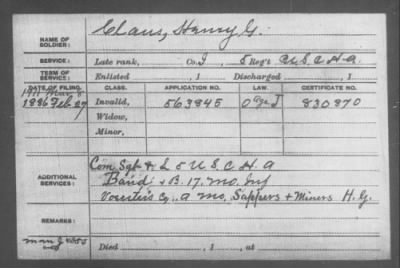 NAME OF SOLDIER: Claus, Henry G.
SERVICE: Late rank, Co. I, 5 Reg't U.S.C.H.A.
TERM OF SERVICE: Enlisted , 1 Discharged , 1
DATE OF FILING. CLASS. APPLICATION NO. LAW. CERTIFICATE NO.
1886 Feb 27 Invalid, 563845 830870
Widow,
Minor,
ADDITIONAL SERVICES: Com Sgt + L 5 U.S.C.H.A
Band + B. 17. Mo. Inf
Co., A Mo. Sappers + Miners H.G.
REMARKS:
Died , 1 , at